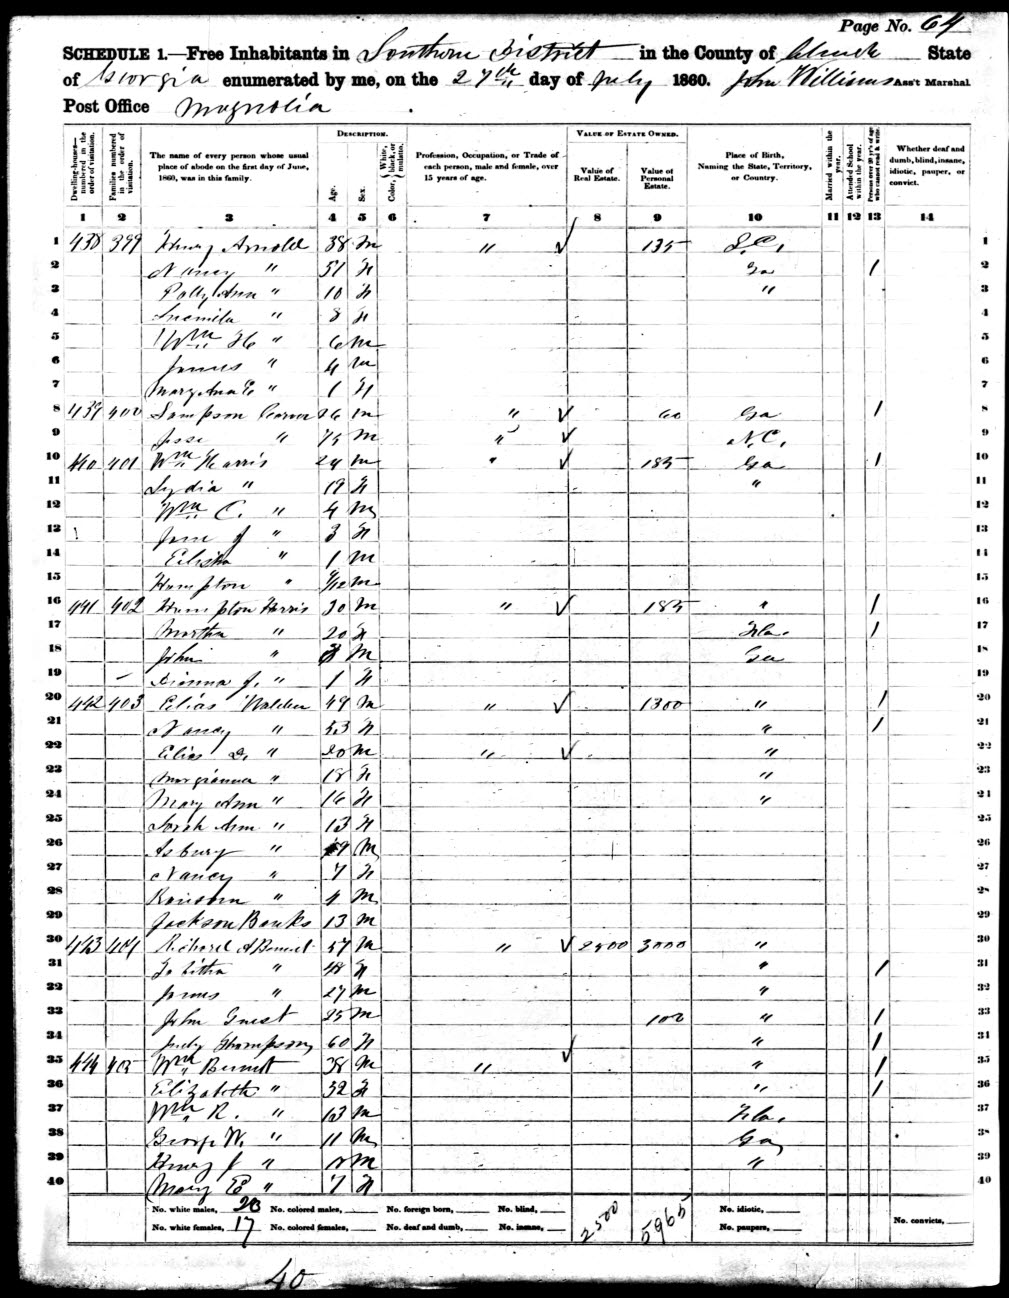 Page No. 64
SCHEDULE 1.—Free Inhabitants in Southern District in the County of Clinch State
of Georgia enumerated by me, on the 27th day of July 1860. John Williams Ass't Marshal
Post Office Magnolia
DESCRIPTION. VALUE OF ESTATE OWNED.
Dwelling-houses—numbered in the order of visitation. Families numbered in the order of visitation. The name of every person whose usual place of abode on the first day of June, 1860, was in this family. Age. Sex. Color, White, black, or mulatto. Profession, Occupation, or Trade of each person, male and female, over 15 years of age. Value of Real Estate. Value of Personal Estate. Place of Birth, Naming the State, Territory, or Country. Married within the year. Attended School within the year. Persons over 20 y'rs of age who cannot read & write. Whether deaf and dumb, blind, insane, idiotic, pauper, or convict.
1 2 3 4 5 6 7 8 9 10 11 12 13 14
1 438 399 Henry Arnold 38 m " ✓ 135 S.C. 1
2 Nancy " 51 f Ga / 2
3 Polly Ann " 10 f " 3
4 " 8 f 4
5 Wm H " 6 m 5
6 James " 4 m 6
7 Mary Ann E " 1 f 7
8 439 400 Sampson 26 m " ✓ 60 Ga / 8
9 " 75 m " ✓ N.C. 9
10 440 401 Wm Harris 24 m " ✓ 185 Ga / 10
11 Lydia " 19 f " 11
12 Wm C. " 4 m 12
13 Jane J " 3 f 13
14 Elisha " 1 m 14
15 Hampton " /12 m 15
16 441 402 Hampton Harris 30 m " ✓ 185 " / 16
17 Martha " 20 f Fla. / 17
18 John " m Ga 18
19 J. " 1 f 19
20 442 403 Elias Walden 49 m " ✓ 1300 " / 20
21 Nancy " 53 f " / 21
22 Elias D. " 20 m " ✓ " 22
23 " 18 f " 23
24 Mary Ann " 16 f " 24
25 Sarah Ann " 13 f 25
26 Asbury " 9 m 26
27 Nancy " 7 f 27
28 Ransom " 4 m 28
29 Jackson Banks 13 m 29
30 443 404 Richard A Bennet 57 m " ✓ 2500 3000 " 30
31 Tabitha " 48 f " / 31
32 James " 27 m " 32
33 John Guest 25 m 100 " / 33
34 Judy Thompson 60 f ✓ " / 34
35 444 405 Wm Bennet 38 m " " / 35
36 Elizabeth " 32 f " / 36
37 Wm R. " 13 m Fla. 37
38 George W. " 11 m Ga 38
39 Henry J " m " 39
40 Mary E " 7 f 40
No. white males, 23 No. colored males, No. foreign born, No. blind, 2500 5965 No. idiotic,
No. white females, 17 No. colored females, No. deaf and dumb, No. insane, No. paupers, No. convicts,
40